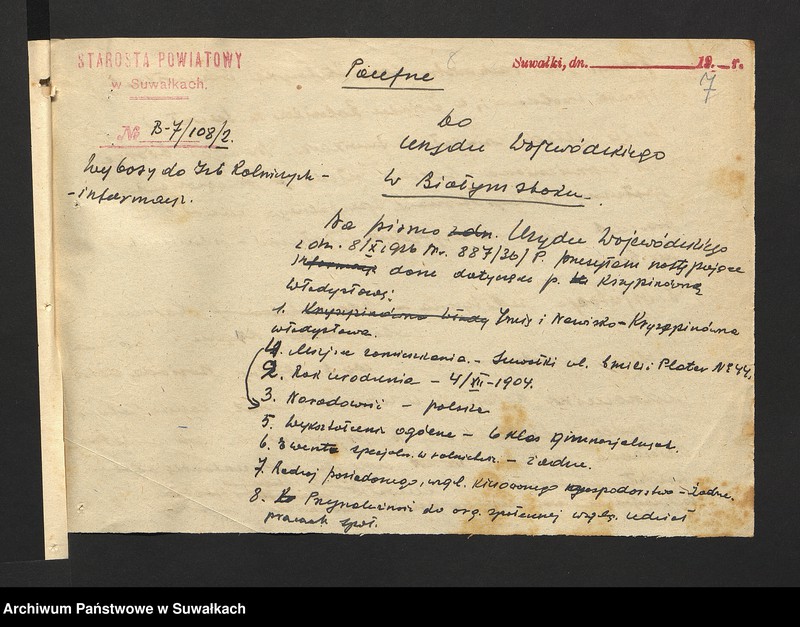 STAROSTA POWIATOWY
w Suwałkach.
Poufne
8
Suwałki, dn. 19 r.
7
№ B-7/108/2.
Do
Urzędu Wojewódzkiego
w Białymstoku.
Wybory do Izb Rolniczych -
- informacje.
Na pismo z dn. Urzędu Wojewódzkiego
z dn. 8/X 1936 Nr. 887/36/P. przesyłam następujące
informacje dane dotyczące p. Krzypinówną
Władysławę:
1. Krzyspinówna Włady Imię i Nazwisko - Krzyspinówna
Władysława.
4. Miejsce zamieszkania. - Suwałki ul. Emilii Plater № 44.
2. Rok urodzenia - 4/XII - 1904.
3. Narodowość - polska
5. Wykształcenie ogólne - 6 klas gimnazjalnych.
6. Ewent. specjaln. w rolnictw. - żadne.
7. Rodzaj posiadanego, wzgl. kierowanego gospodarstwa - żadne.
8. Przynależność do org. społecznej wzgl. udział
pracach społ.
Archiwum Państwowe w Suwałkach